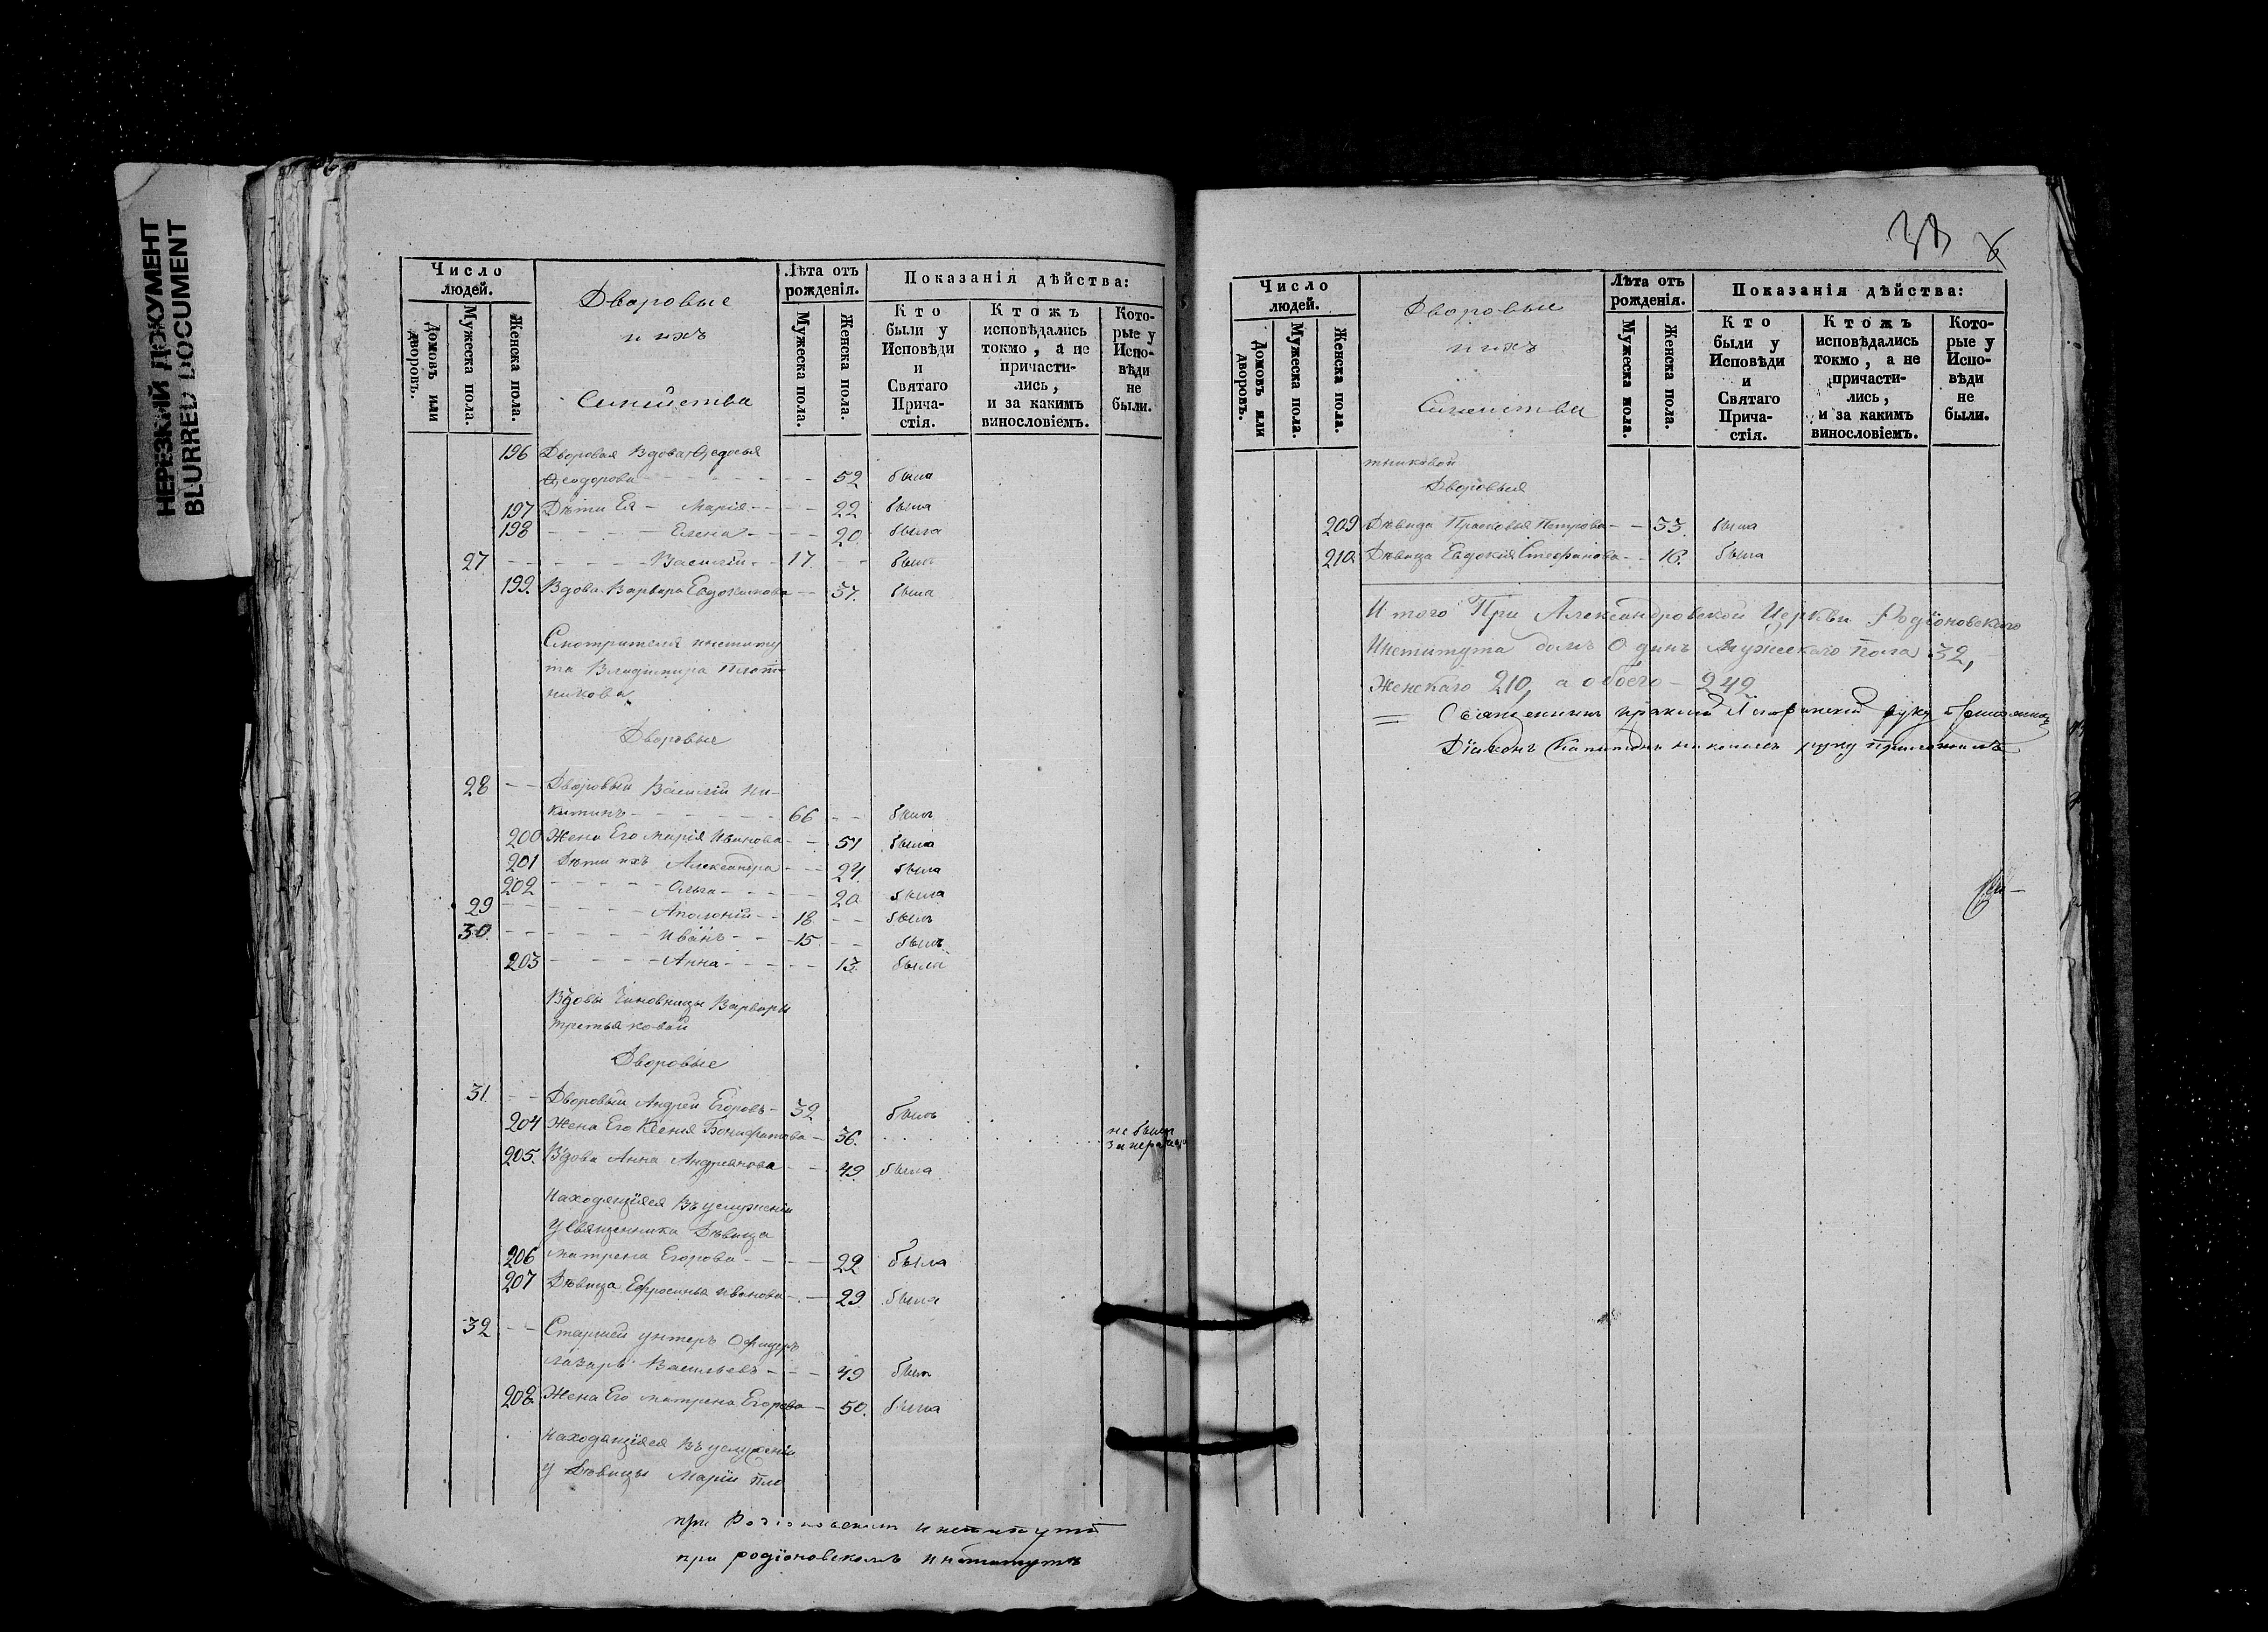 НЕРЕЗКИЙ ДОКУМЕНТ
BLURRED DOCUMENT
Число людей.
Домовъ или дворовъ.
Мужеска пола.
Женска пола.
Дворовые
и ихъ
Семейства
Лѣта отъ рожденія.
Мужеска пола.
Женска пола.
Показанія дѣйства:
Кто были у Исповѣди и Святаго Прича-стія.
Ктожъ исповѣдались токмо, а не причасти-лись, и за какимъ винословіемъ.
Кото-рые у Испо-вѣди не были.
196 Дворовая Вдова Ѳедосья
Ѳеодорова 52 была
197 Дѣти Ея - Марія 22 была
198 Елена 20 была
27 Василій 17. былъ
199. Вдова Варвара Евдокимова 57. была
Смотрителя институ
та Владимира Плот-
никова
Дворовые
28 Дворовый Василій Ни-
китинъ 66 былъ
200 Жена Его Марія Иванова 51 была
201 Дѣти ихъ Александра 24. была
202 Ольга 20 была
29 Аполоній 18 былъ
30. Иванъ 15 былъ
203 Анна 13. была
Вдовы Чиновницы Варвары
Третьяковой
Дворовые
31. Дворовый Андрей Егоровъ 32 былъ
204 Жена Его Ксенія Бонифатова 36. не была
205. Вдова Анна Андреянова 49. была
Находящіяся Въ услуженіи
у Священника Дѣвица
206 Матрена Егорова 22 была
207 Дѣвица Ефросинья Иванова 29 была
32 Старшей унтеръ Офицеръ
Лазарь Васильевъ 49 былъ
208. Жена Его Матрена Егорова 50. была
Находящіяся Въ услуженіи
у Дѣвицы Маріи Пло
при Родіоновскомъ Институтѣ
при родіоновскомъ институтѣ
38
Число людей.
Домовъ или дворовъ.
Мужеска пола.
Женска пола.
Дворовые
и ихъ
Семейства
Лѣта отъ рожденія.
Мужеска пола.
Женска пола.
Показанія дѣйства:
Кто были у Исповѣди и Святаго Прича-стія.
Ктожъ исповѣдались токмо, а не причасти-лись, и за какимъ винословіемъ.
Кото-рые у Испо-вѣди не были.
тниковой
Дворовыя
209 Дѣвица Прасковья Петрова 33. была
210. Дѣвица Евдокия Стефанова 18. была
Итого При Александровской Церкви Родіоновского
Института домъ Одинъ Мужескаго пола 32,
Женскаго 210, а обоего - 242
Священникъ руку приложилъ
Діаконъ Капитонъ руку приложилъ